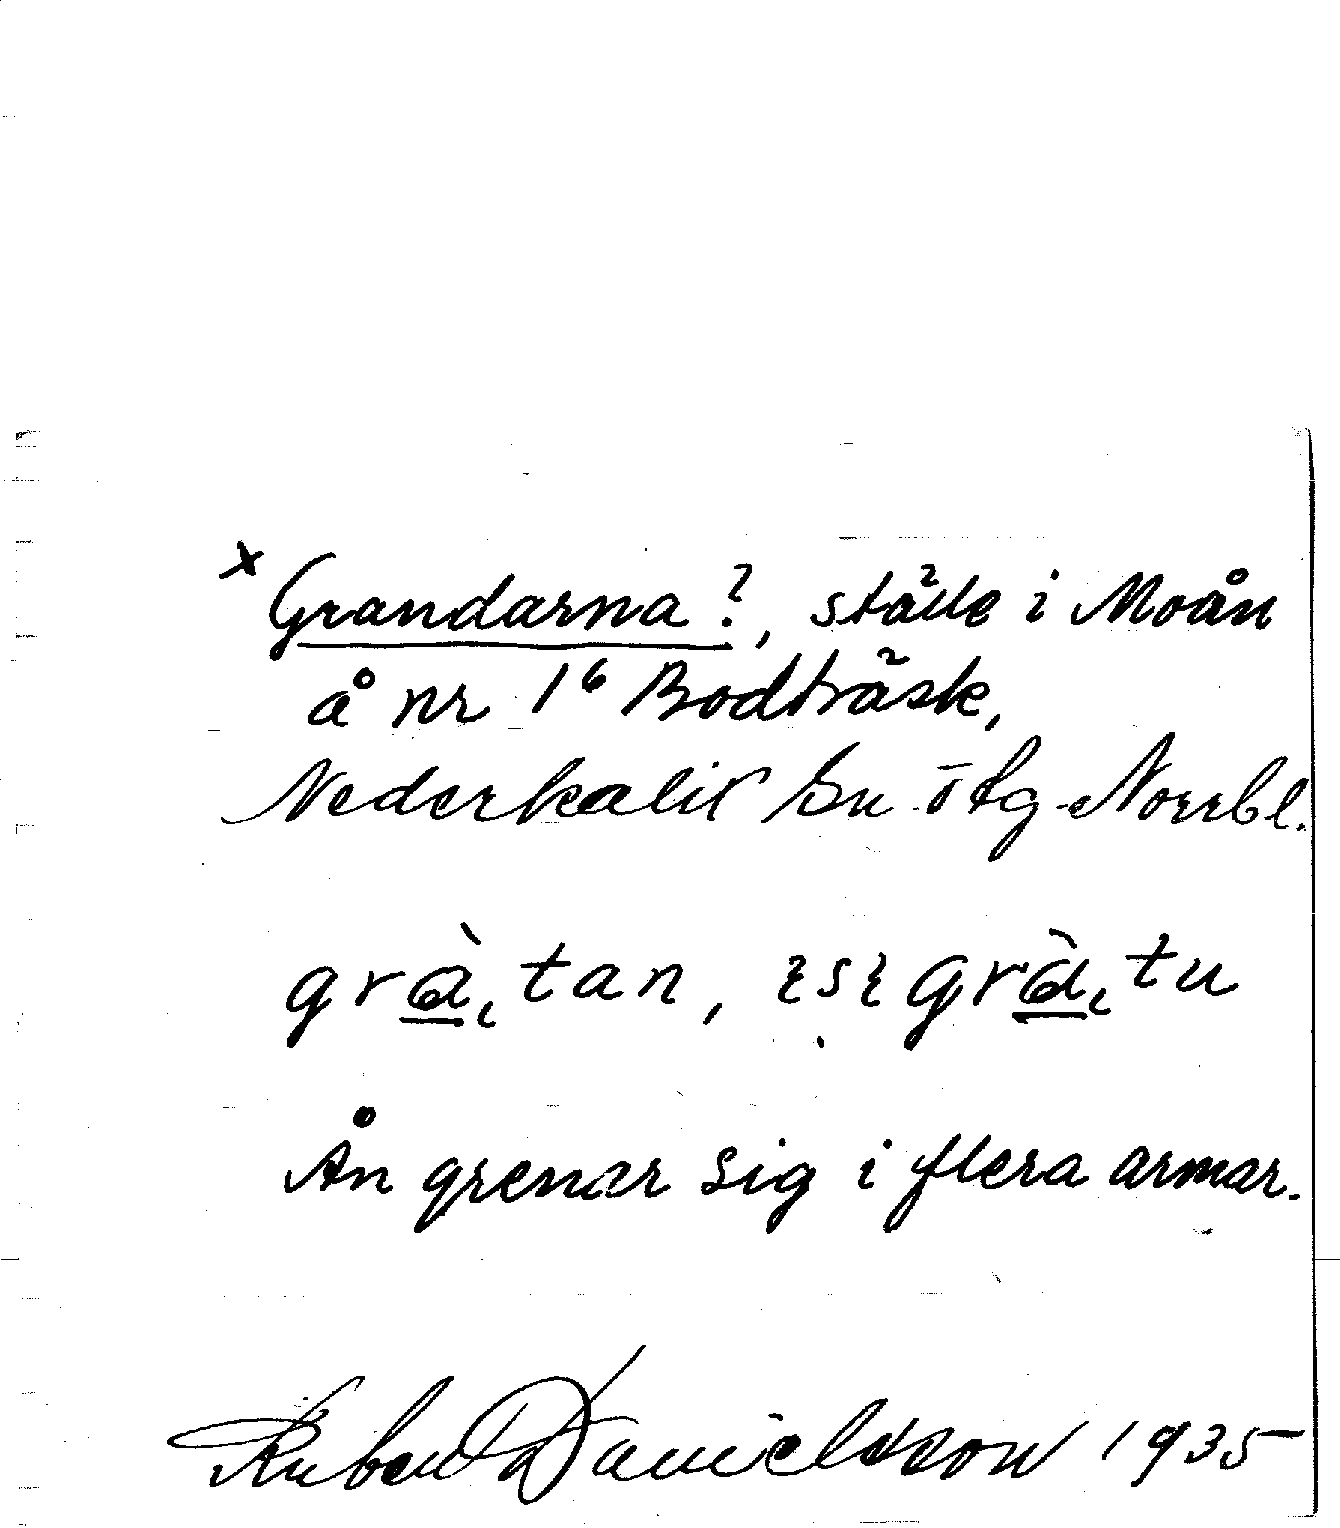 x Grandarna?, ställe i Moån
å nr 1⁶ Bodträsk,
Nederkalix sn ötg Norrbl.
grà̱tan, grà̱tu
Ån grenar sig i flera armar.
Ruben Danielsson 1935